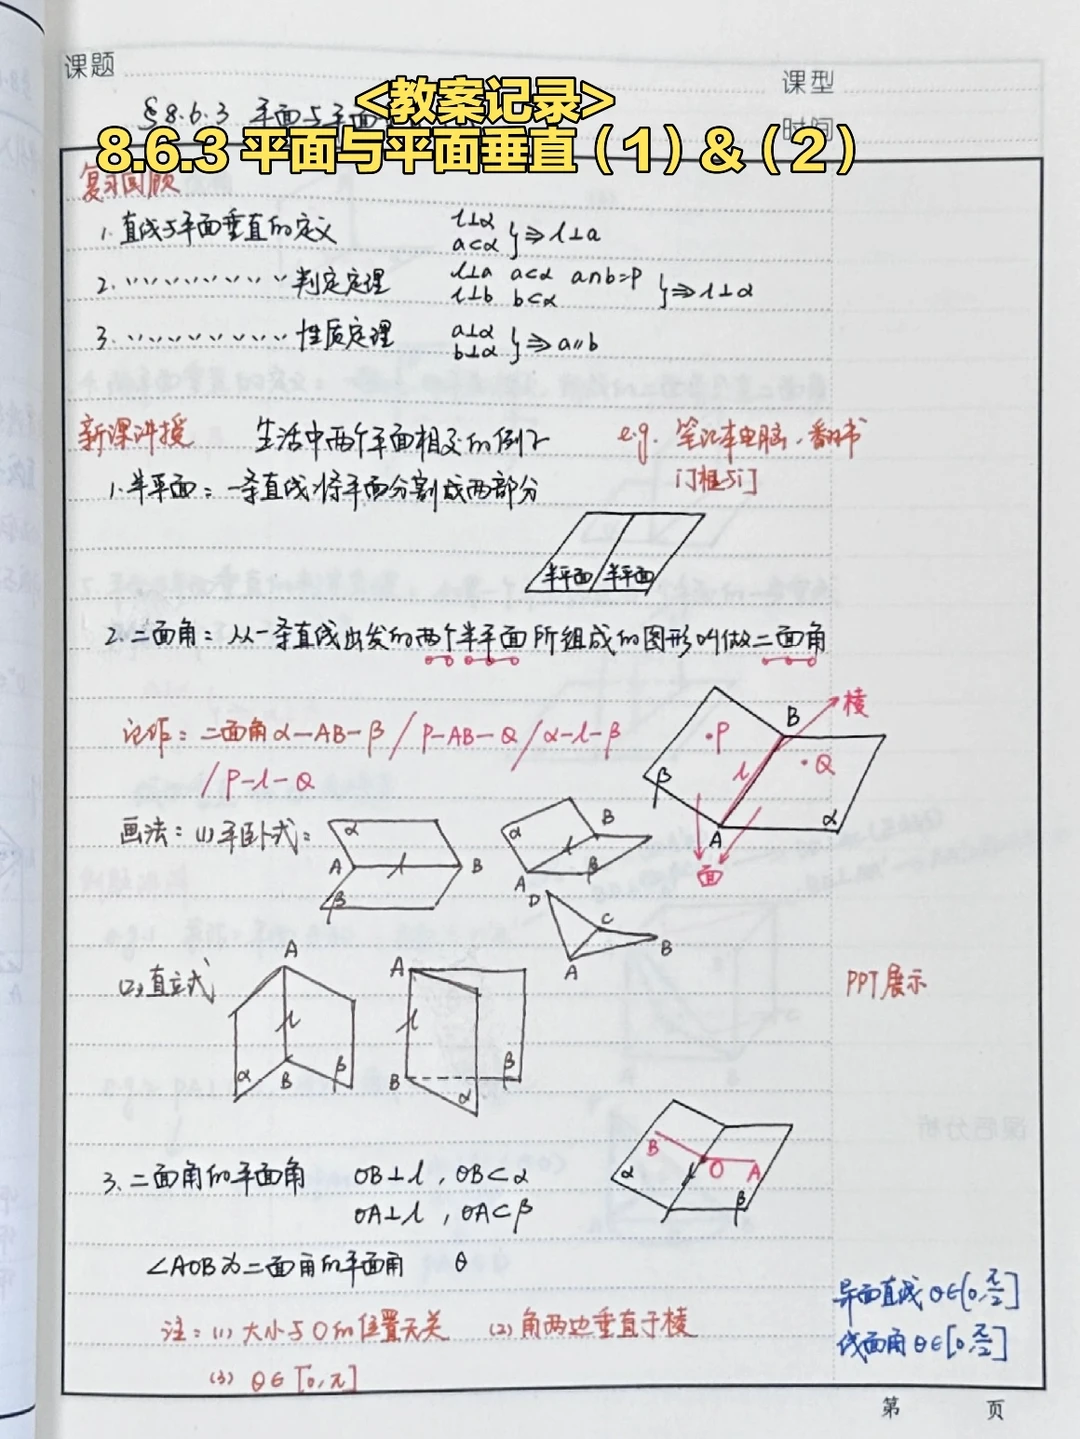 课题
课型
§8.6.3 平面与平面
时间
<教案记录>
8.6.3 平面与平面垂直（1）&（2）
复习回顾
1. 直线与平面垂直的定义 l⊥α a⊂α }⇒ l⊥a
2. 〃〃〃〃〃〃 判定定理 l⊥a a⊂α a∩b=P l⊥b b⊂α }⇒ l⊥α
3. 〃〃〃〃〃〃 性质定理 a⊥α b⊥α }⇒ a∥b
新课讲授 生活中两个平面相交的例子 e.g. 笔记本电脑、翻书
门框与门
1. 半平面：一条直线将平面分割成两部分
半平面 半平面
2. 二面角：从一条直线出发的两个半平面所组成的图形叫做二面角
记作：二面角α-AB-β / P-AB-Q / α-l-β
/ P-l-Q
B 棱
P
l
Q
β
α
A
面
画法：(1) 平卧式：
α
A l B
β
α B
l
β
A
D
C
B
A
(2) 直立式
A
l
α B β
A
l
B β
α
PPT展示
3. 二面角的平面角 OB⊥l，OB⊂α
OA⊥l，OA⊂β
B
α l O A
β
∠AOB为二面角的平面角 θ
异面直线 θ∈(0, π/2]
注：(1) 大小与O的位置无关 (2) 角两边垂直于棱
线面角 θ∈[0, π/2]
(3) θ∈[0, π]
第 页